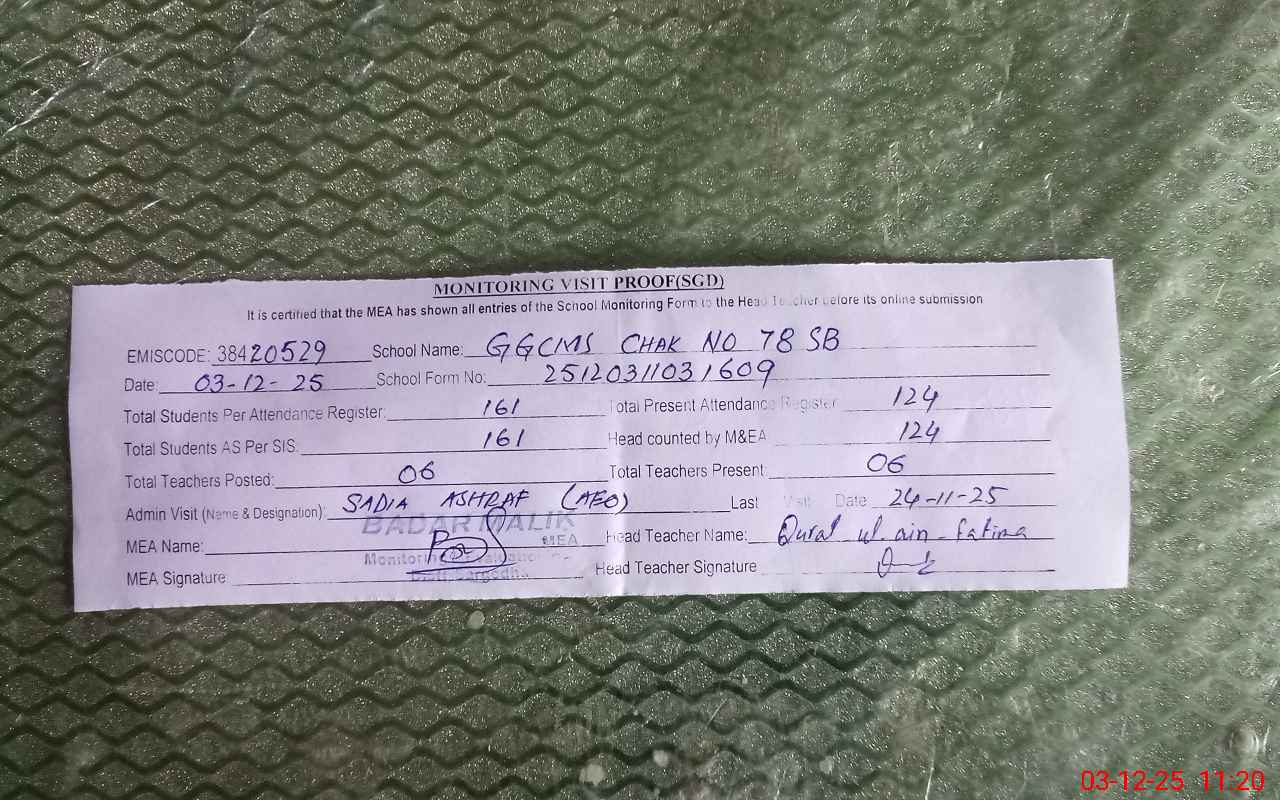 MONITORING VISIT PROOF(SGD)
It is certified that the MEA has shown all entries of the School Monitoring Form to the Head Teacher before its online submission
EMISCODE: 38420529 School Name: GGCMS CHAK NO 78 SB
Date: 03-12-25 School Form No: 25120311031609
Total Students Per Attendance Register: 161 Total Present Attendance Register 124
Total Students AS Per SIS. 161 Head counted by M&EA 124
Total Teachers Posted: 06 Total Teachers Present: 06
Admin Visit (Name & Designation): SADIA ASHRAF (AEO) Last Visit Date 24-11-25
MEA Name: BADAR MALIK Head Teacher Name: Qurat ul ain fatima
MEA
Monitoring
MEA Signature Distt. Sargodha Head Teacher Signature
03-12-25 11:20